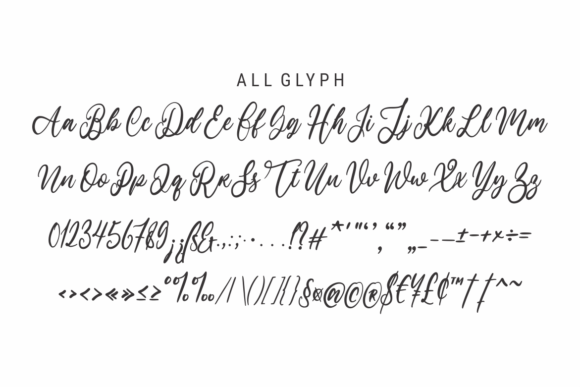 ALL GLYPH
Aa Bb Cc Dd Ee Ff Gg Hh Ii Jj Kk Ll Mm
Nn Oo Pp Qq Rr Ss Tt Uu Vv Ww Xx Yy Zz
0123456789¡¿ß&.,:;·•...!?#*'"‘’‚“”„_-–—±-+×÷=
‹›<>«»≤≥°%‰/|\()[]{}§¤@©®$€¥£¢™†‡^~